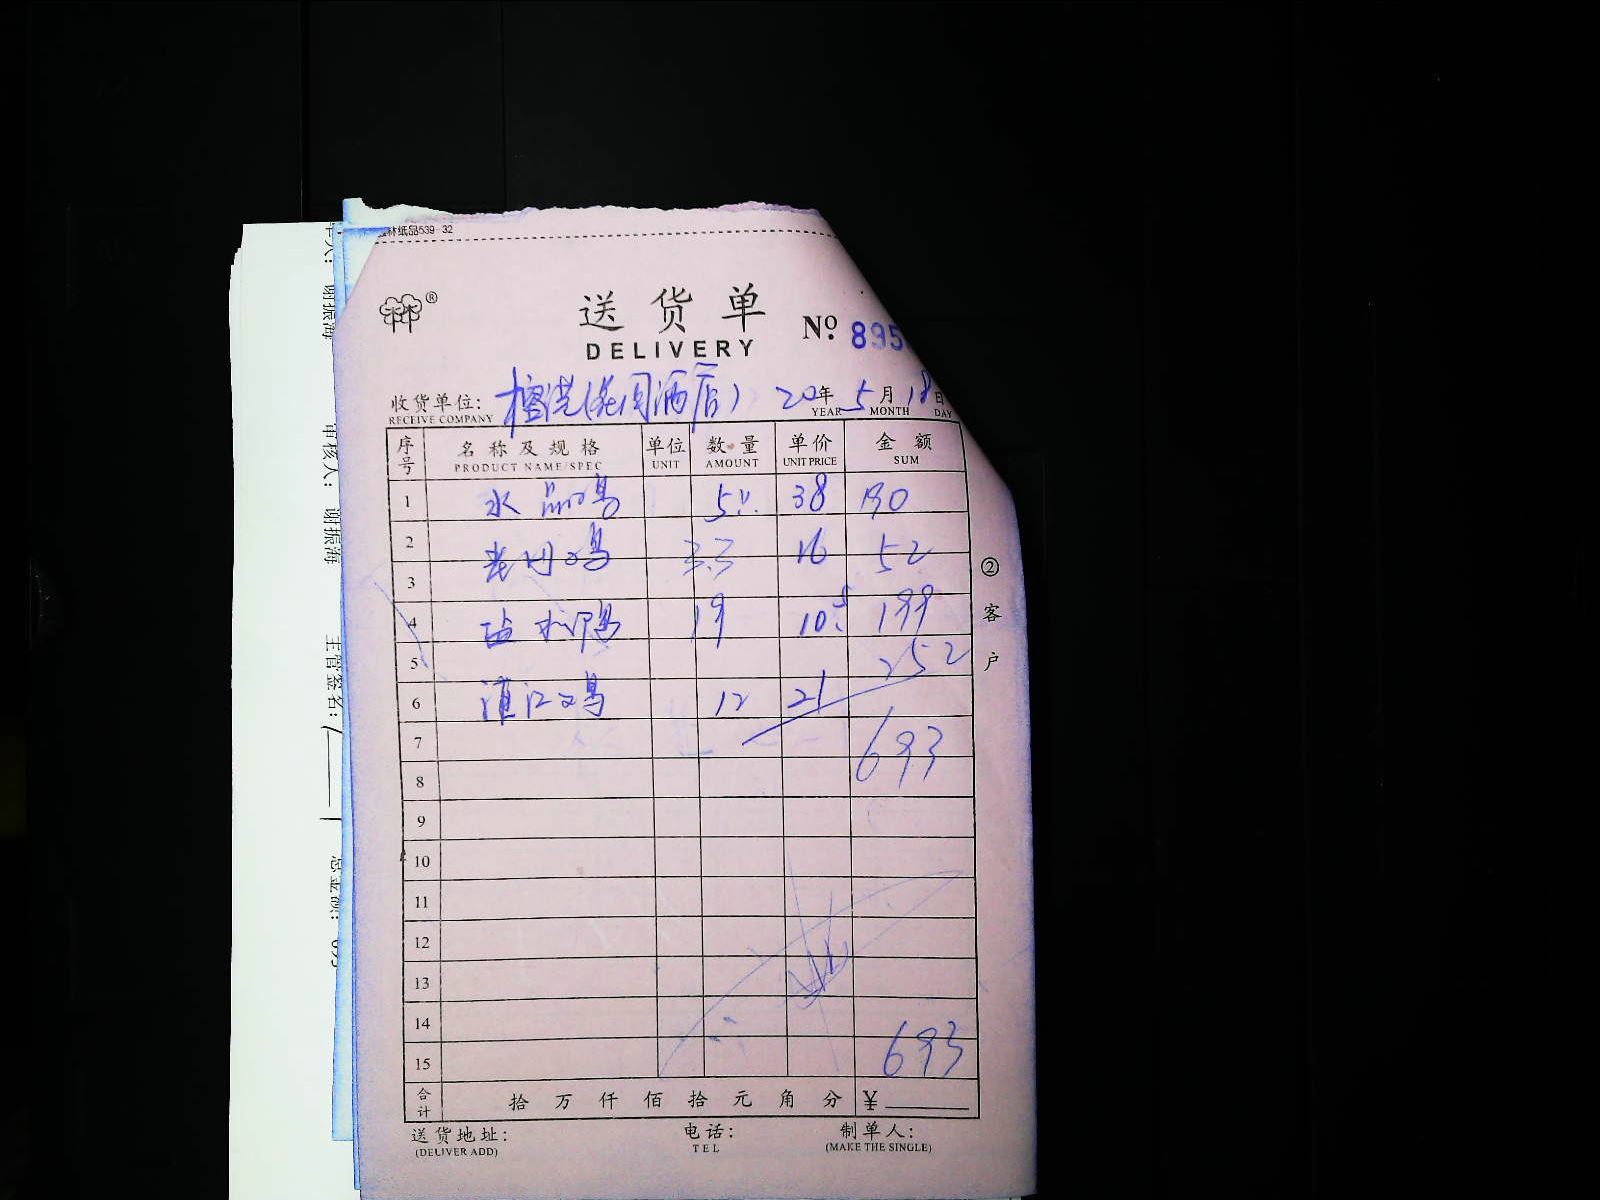 林纸品539-32
®
送货单
DELIVERY
№ 895
收货单位: 酒店) 20年 5月 18日
RECEIVE COMPANY YEAR MONTH DAY
序号 名称及规格 单位 数量 单价 金额
PRODUCT NAME/SPEC UNIT AMOUNT UNIT PRICE SUM
1 水 38 190
2 3.3 16 52
3
4 19 10.5 199
5 252
6 12 21
7 693
8
9
10
11
12
13
14
15 693
合计 拾 万 仟 佰 拾 元 角 分 ¥
送货地址: 电话: 制单人:
(DELIVER ADD) TEL (MAKE THE SINGLE)
② 客户
谢振海
审核人: 谢振海
主管签名:
总金额: